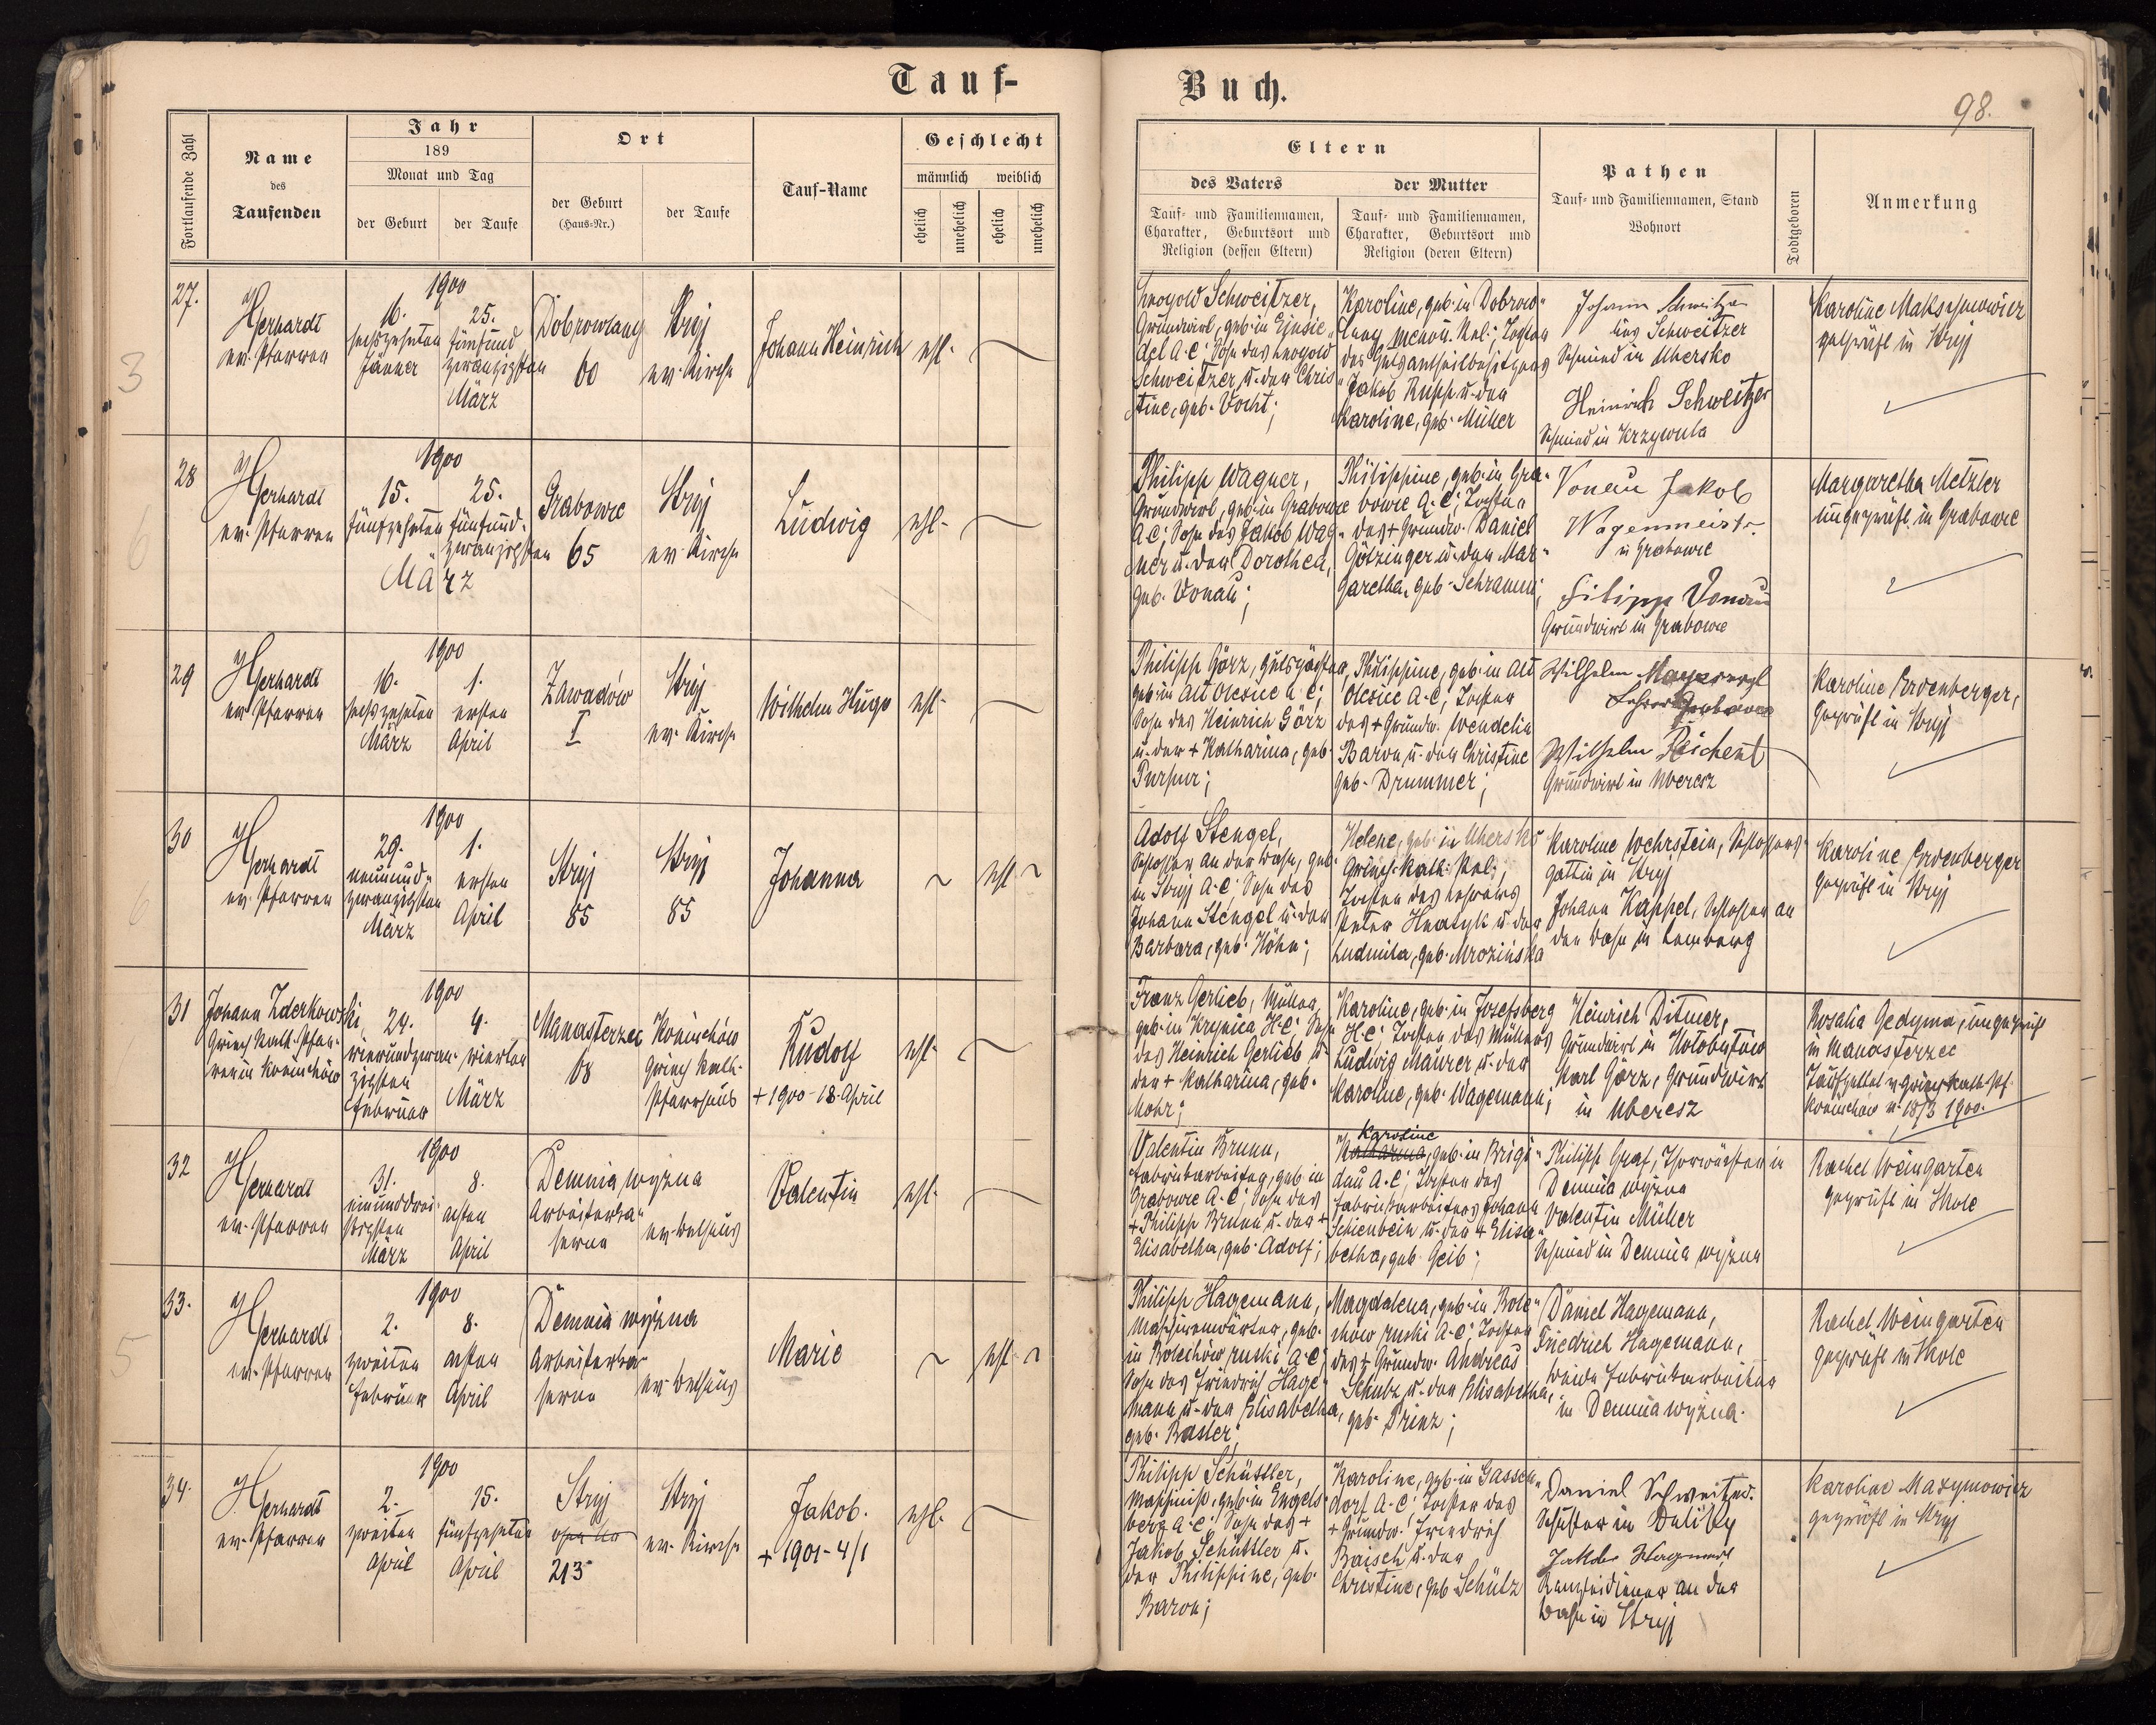 Tauf-
Buch.
98.
Fortlaufende Zahl
Name
des
Taufenden
Jahr
189
Monat und Tag
der Geburt
der Taufe
Ort
der Geburt
(Haus-Nr.)
der Taufe
Tauf-Name
Geschlecht
männlich
weiblich
ehelich
unehelich
ehelich
unehelich
Eltern
des Vaters
Tauf- und Familiennamen,
Charakter, Geburtsort und
Religion (dessen Eltern)
der Mutter
Tauf- und Familiennamen,
Charakter, Geburtsort und
Religion (deren Eltern)
Pathen
Tauf- und Familiennamen, Stand
Wohnort
Todtgeboren
Anmerkung
3
27.
ev. Pfarrer
1900
16.
sechszehnten
Jänner
25.
fünfund
zwanzigsten
März
Dobrowlany
60
Stryj
ev. Kirche
Johann Heinrich
ehl.
Leopold Schweitzer,
Grundwirt, geb. in Ejnsie-
del A.C; Sohn des Leopold
Schweitzer u. der Chris-
tine, geb. Vocht;
Karoline, geb. in Dobrow-
lany, menon. Rel.; Tochter
des Gutsantheilbesitzers
Jakob Rupp u. der
Karoline, geb. Müller
Johann Schweitzer
Schweitzer
Schmied in Uhersko
Heinrich Schweitzer
Schmied in Krzywula
Karoline Maksymowicz
geprüft in Stryj
6
28
ev. Pfarrer
1900
15.
fünfzehnten
25.
fünfund-
zwanzigsten
März
Grabowce
65
Stryj
ev. Kirche
Ludwig
ehl.
Philipp Wagner,
Grundwirt, geb. in Grabowce
A.C; Sohn des Jakob Wag-
ner u. der Dorothea,
geb. Vonau;
Philippine, geb. in Gra-
bowce A.C; Tochter
des + Grundw. Daniel
Götzinger u. der Mar-
garetha, geb. Schramm;
Vonau Jakob
Wagenmeister
in Grabowce
Filipp Vonau
Grundwirt in Grabowce
Margaretha Metzler
ungeprüft in Grabowce
29
ev. Pfarrer
1900
16.
sechszehnten
März
1.
ersten
April
Zawadów
I
Stryj
ev. Kirche
Wilhelm Hugo
ehl.
Philipp Görz, Gutspächter,
geb. in Alt Olesice A.C;
Sohn des Heinrich Görz
u. der + Katharina, geb.
Purpur;
Philippine, geb. in Alt
Olesice A.C; Tochter
des + Grundw. Wendelin
Baron u. der Christine
geb. Drummer;
Wilhelm
Lehrer Grabowce
Wilhelm Reichert
Grundwirt in Uberesz
Karoline Erdenberger,
geprüft in Stryj
6
30
ev. Pfarrer
1900
29.
neunund-
zwanzigsten
März
1.
ersten
April
Stryj
85
Stryj
85
Johanna
ehl.
Adolf Stengel,
Schlosser an der Bahn, geb.
in Stryj A.C; Sohn des
Johann Stengel u. der
Barbara, geb. Höhn;
Helene, geb. in Uhersko
Griech. kath. Rel.;
Tochter des Lehrers
Peter Hnatyk u. der
Ludmila, geb. Mrozińska
Karoline Wehrstein, Schlossers-
gattin in Stryj
Johann Kappel, Schlosser an
der Bahn in Lemberg
Karoline Erdenberger
geprüft in Stryj
31
Johann Zderkowski,
Griech. kath. Pfar-
rer in Koniuchów
1900
24.
vierundzwan-
zigsten
Februar
4.
vierten
März
Manasterzec
68
Koniuchów
griech. kath.
Pfarrhaus
Rudolf
+ 1900 - 18. April
ehl.
Franz Gerlieb, Müller,
geb. in Krynica H.C; Sohn
des Heinrich Gerlieb u.
der + Katharina, geb.
Mohr;
Karoline, geb. in Josefsberg
H.C; Tochter des Müllers
Ludwig Maurer u. der
Karoline, geb. Wagemann;
Heinrich Ditmer,
Grundwirt in Hołobutów
Karl Görz, Grundwirt
in Uberesz
Rosalia Gedyma, ungeprüft
in Manasterzec
Taufzettel v. griech. kath. Pf.
Koniuchów v. 18/3 1900.
32
ev. Pfarrer
1900
31.
einunddrei-
ssigsten
März
8.
achten
April
Demnia wyżna
Arbeiterka-
serne
ev. Bethaus
Valentin
ehl.
Valentin Brunn,
Fabriksarbeiter, geb. in
Grabowce A.C; Sohn des
+ Philipp Brunn u. der +
Elisabetha, geb. Adolf;
Karoline
Katharina, geb. in Brigi-
dau A.C; Tochter des
Fabriksarbeiters Johann
Schienbein u. der + Elisa-
betha, geb. Geib;
Philipp Graf, Thorwächter in
Demnia wyżna
Valentin Müller
Schmied in Demnia wyżna
Rachel Weingarten
geprüft in Skole
5
33.
ev. Pfarrer
1900
2.
zweiten
Februar
8.
achten
April
Demnia wyżna
Arbeiterka-
serne
ev. Bethaus
Marie
ehl.
Philipp Hagemann,
Maschinenwärter, geb.
in Bolechów ruski A.C;
Sohn des Friedrich Hage-
mann u. der Elisabetha,
geb. Basler;
Magdalena, geb. in Bole-
chów ruski A.C; Tochter
des + Grundw. Andreas
Schulz u. der Elisabetha,
geb. Prinz;
Daniel Hagemann,
Friedrich Hagemann,
beide Fabriksarbeiter
in Demnia wyżna.
Rachel Weingarten
geprüft in Skole
34.
ev. Pfarrer
1900
2.
zweiten
April
15.
fünfzehnten
April
Stryj
213
Stryj
ev. Kirche
Jakob.
+ 1901 - 4/1
ehl.
Philipp Schüttler,
Maschinist, geb. in Engels-
berg A.C; Sohn des +
Jakob Schüttler u.
der Philippine, geb.
Baron;
Karoline, geb. in Gassen-
dorf A.C; Tochter des
+ Grundw. Friedrich
Baisch u. der
Christine, geb. Schütz
Daniel Schweitzer
Schuster in
Jakob
Kanzleidiener an der
Bahn in Stryj
Karoline Maxymowicz
geprüft in Stryj